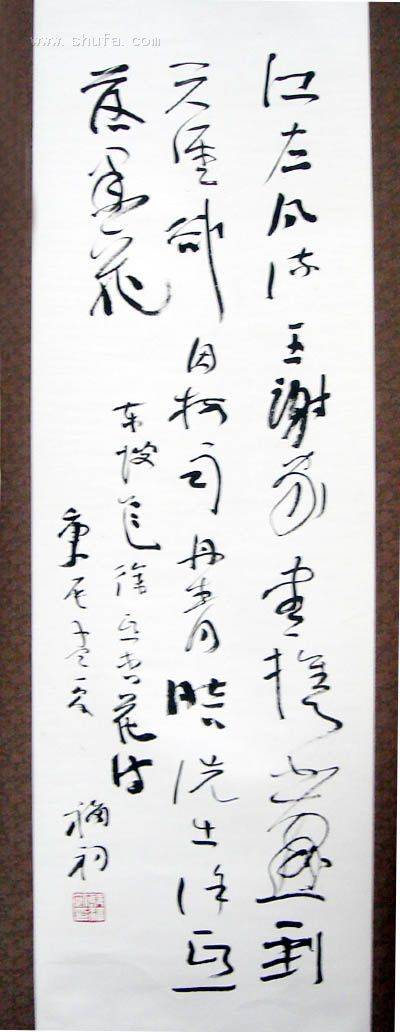 www.shufa.com
江左风流王謝家尽携书画到
天涯却因梅雨丹青暗洗出徐熙
落墨花
东坡题徐熙杏花诗
庚辰
福